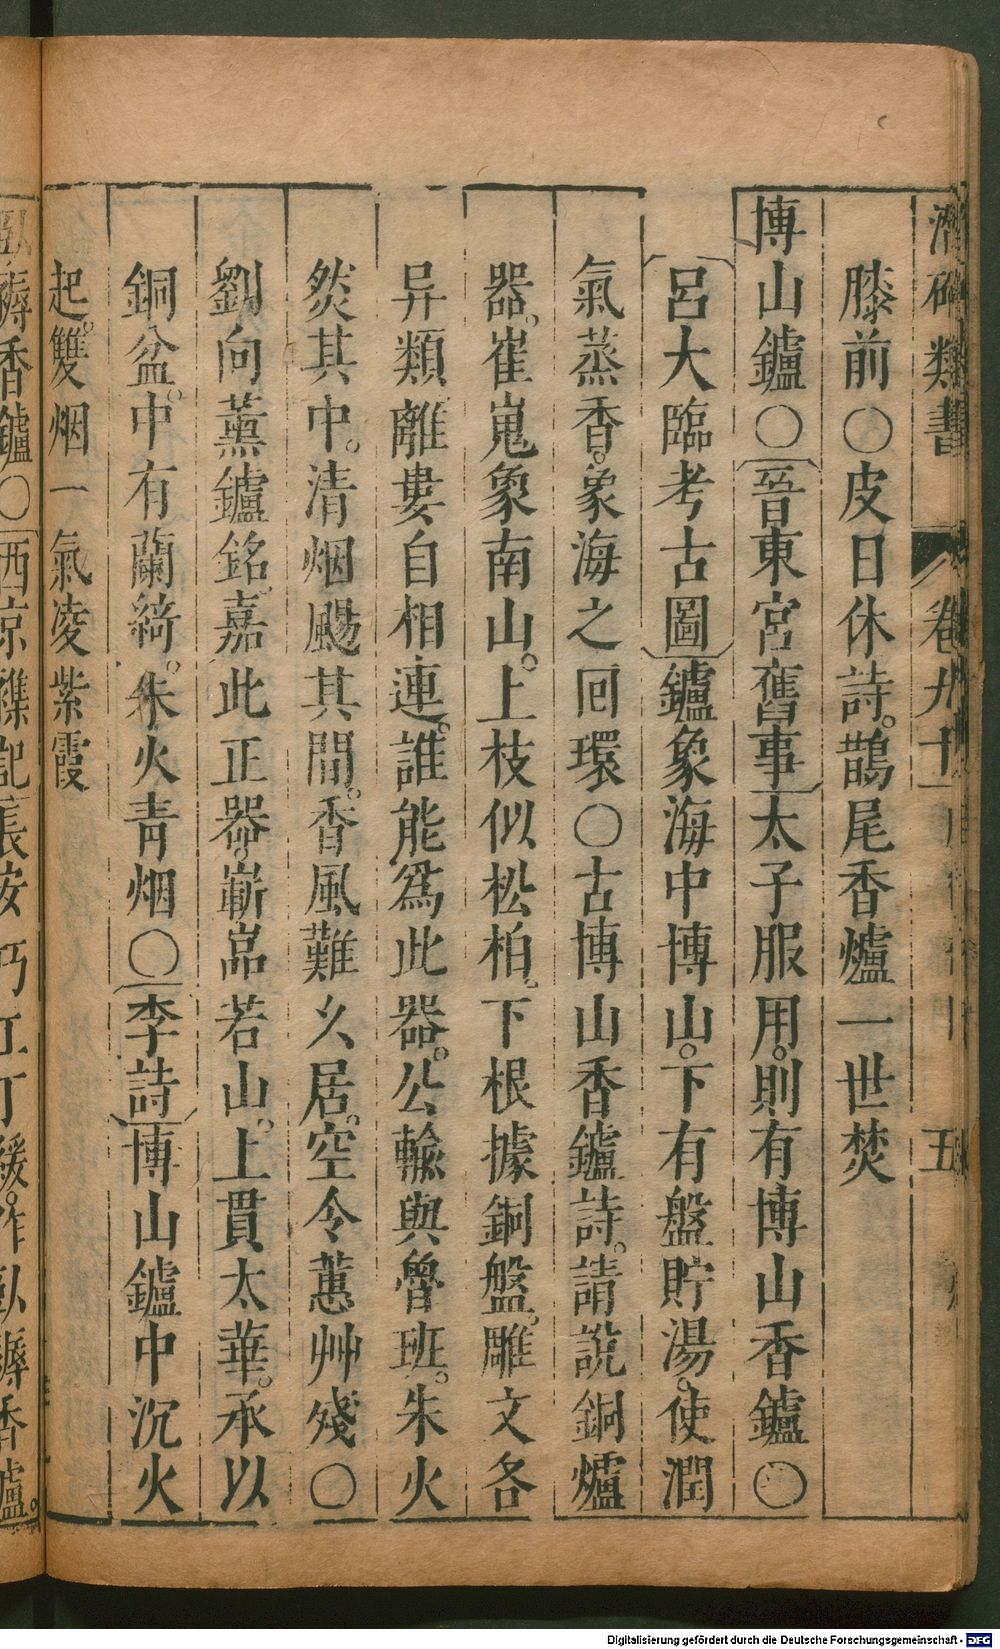 潛確類書 卷九十 五
膝前○皮日休詩。鵲尾香爐一世焚
博山鑪○晉東宮舊事太子服用。則有博山香鑪○
呂大臨考古圖鑪象海中博山。下有盤貯湯。使潤
氣蒸香。象海之囘環○古博山香鑪詩。請說銅爐
器。崔嵬象南山。上枝似松柏。下根據銅盤。雕文各
异類。離婁自相連。誰能爲此器。公輸與魯班。朱火
然其中。清烟颺其間。香風難久居。空令蕙艸殘○
劉向薰鑪銘。嘉此正器。嶄嵓若山。上貫太華。承以
銅盆。中有蘭綺。朱火青烟○李詩博山鑪中沉火
起。雙烟一氣凌紫霞
臥褥香鑪○西京襍記長安巧工丁緩。作臥褥香爐。
Digitalisierung gefördert durch die Deutsche Forschungsgemeinschaft - DFG